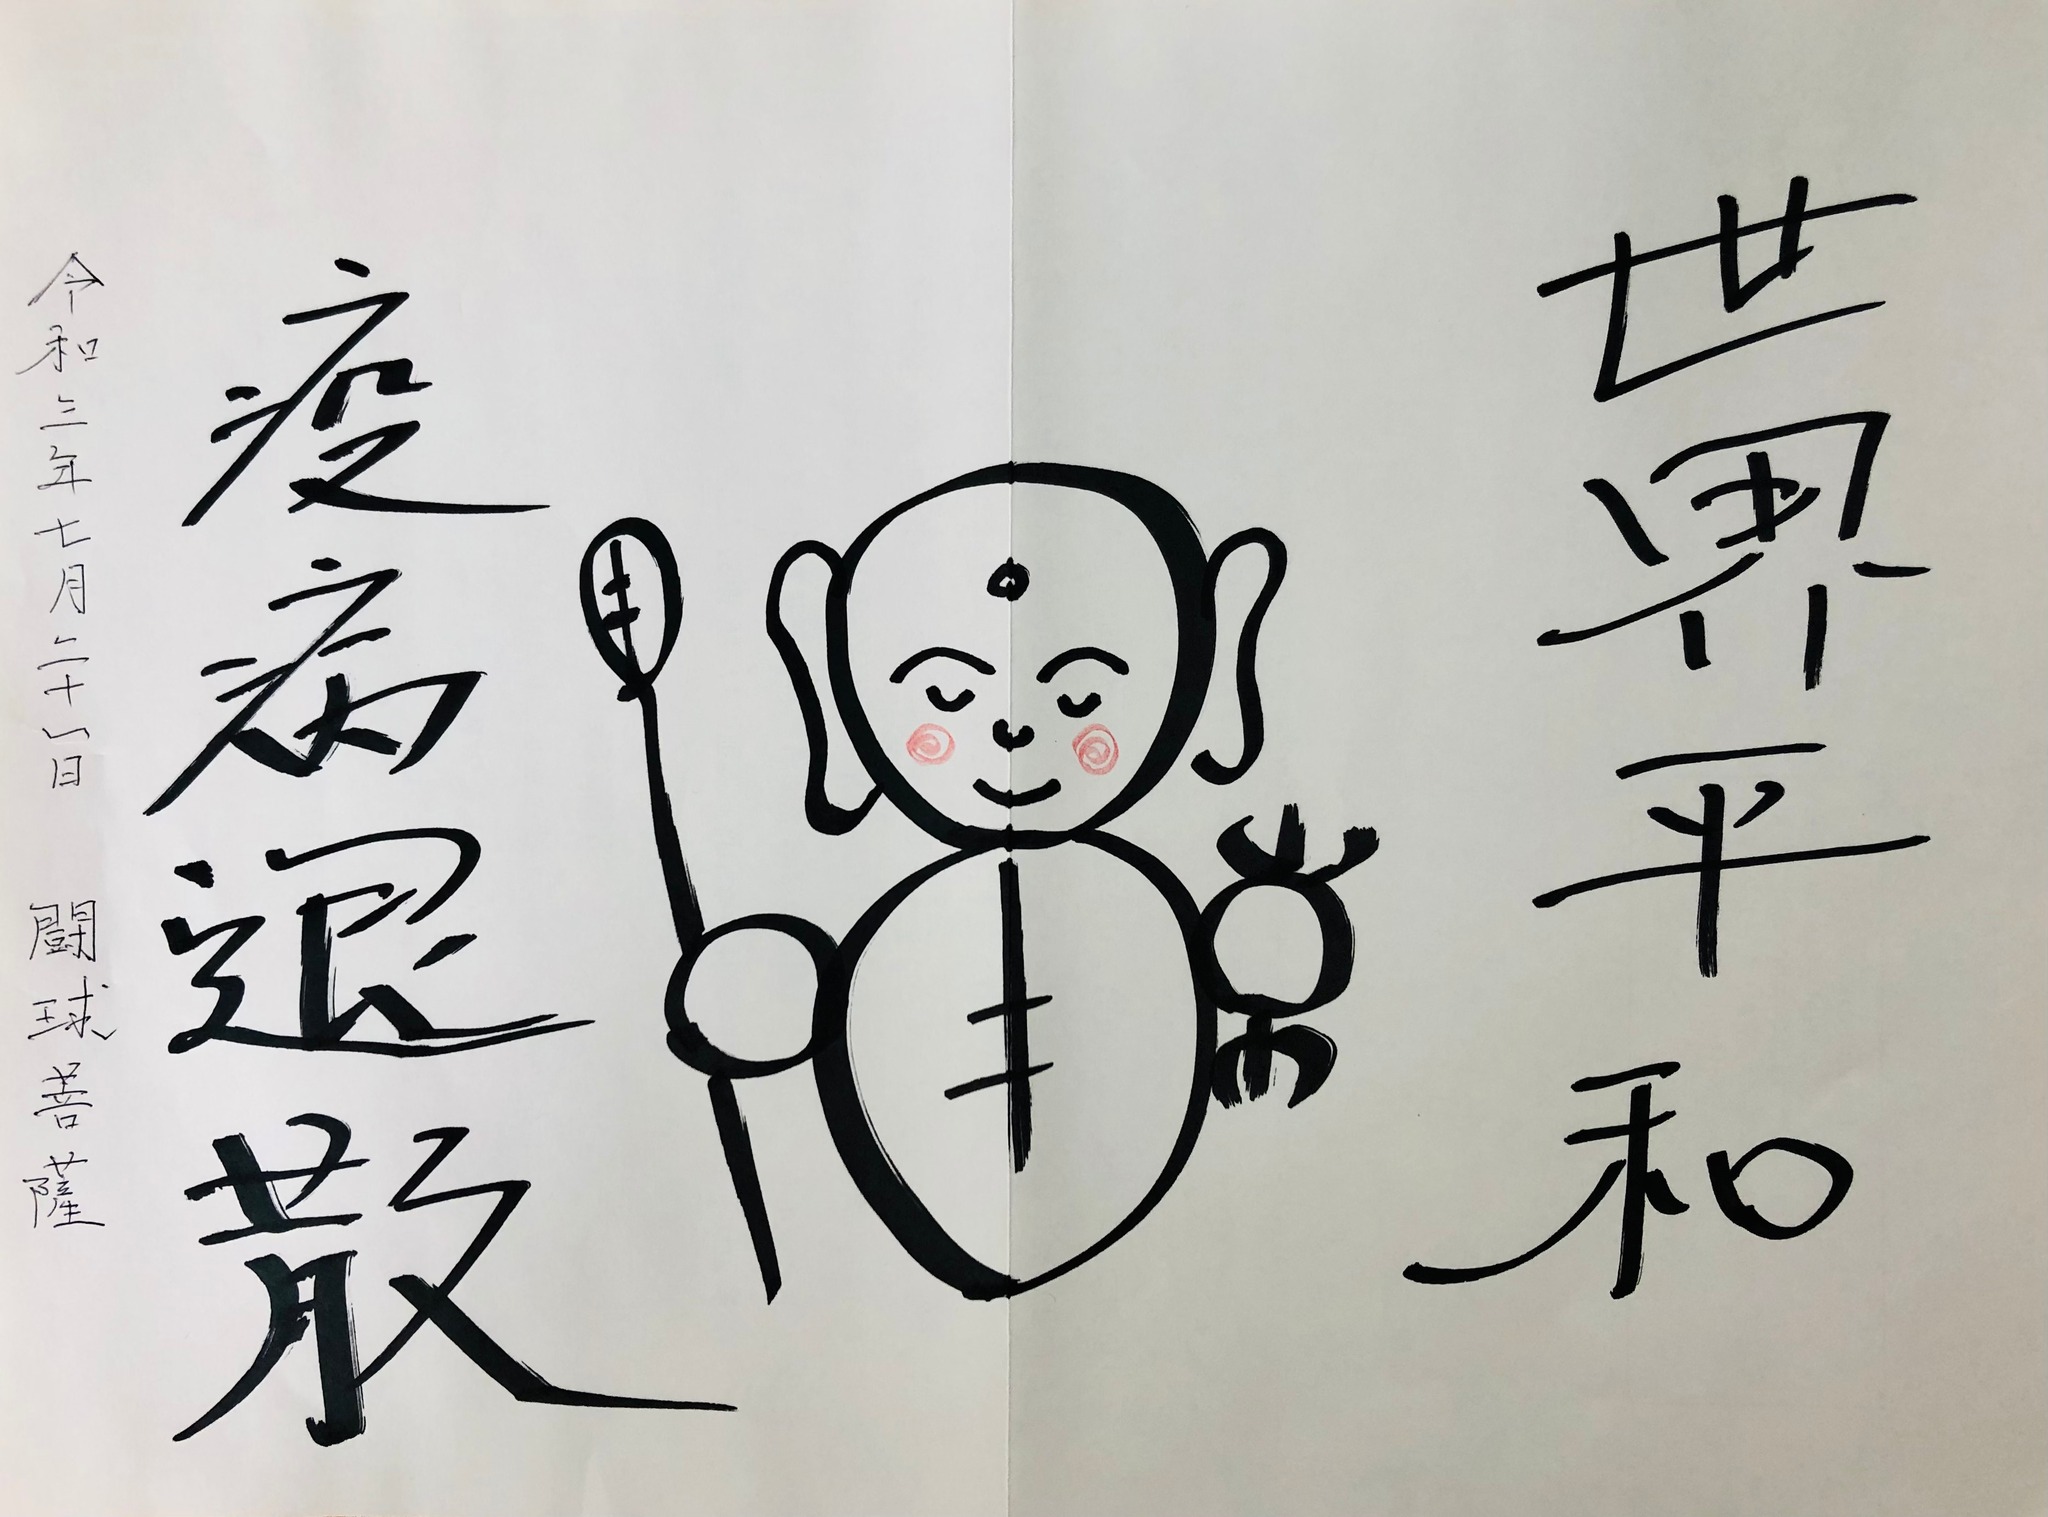 世界平和
疫病退散
令和三年七月二十八日 闘球菩薩